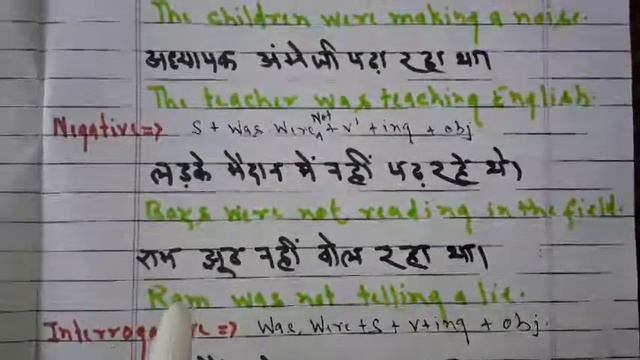 The children were making a noise.
अध्यापक अंग्रेजी पढ़ा रहा था।
The teacher was teaching English.
Negative=> S + was were Not + v¹ + ing + obj
लड़के मैदान में नहीं पढ़ रहे थे।
Boys were not reading in the field.
राम झूठ नहीं बोल रहा था।
Ram was not telling a lie.
=> Was, Were + S + v + ing + obj.